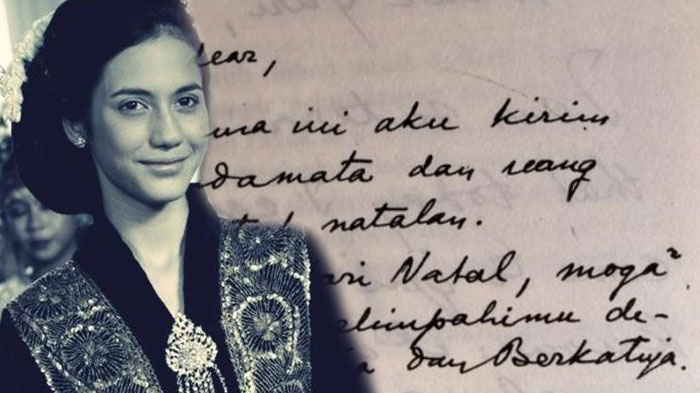 ear,
ma ini aku kirim
damata dan uang
natalan.
ri Natal, moga²
limpahimu de-
dan Berkatnja.